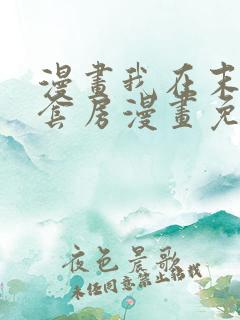 漫畫我在末
套房漫畫免
夜色晨歌
未经同意禁止转载